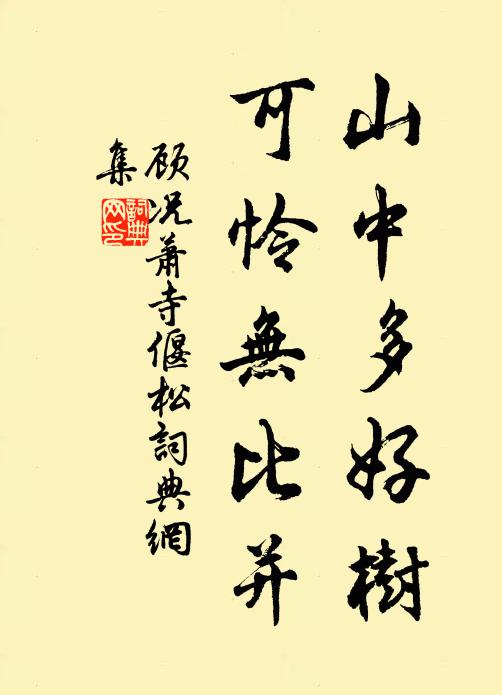 山中多好樹
可怜無比并
顾况萧寺偃松詞典網
集
詞典
网印